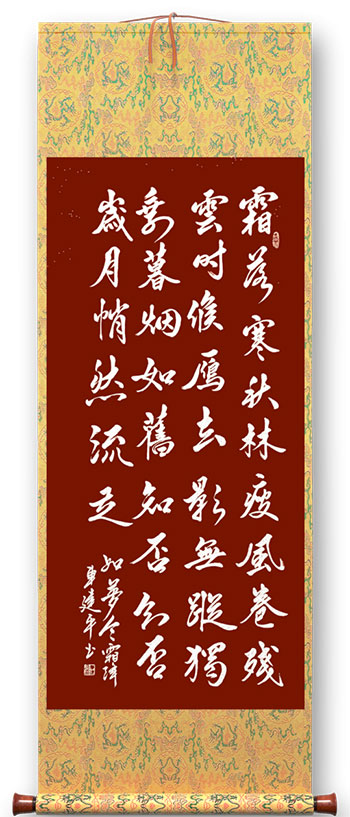 霜落寒秋林瘦風卷殘
雲时候鴈去影無蹤獨
剩暮烟如舊知否知否
歲月悄然流走
如夢令霜降
車建平书